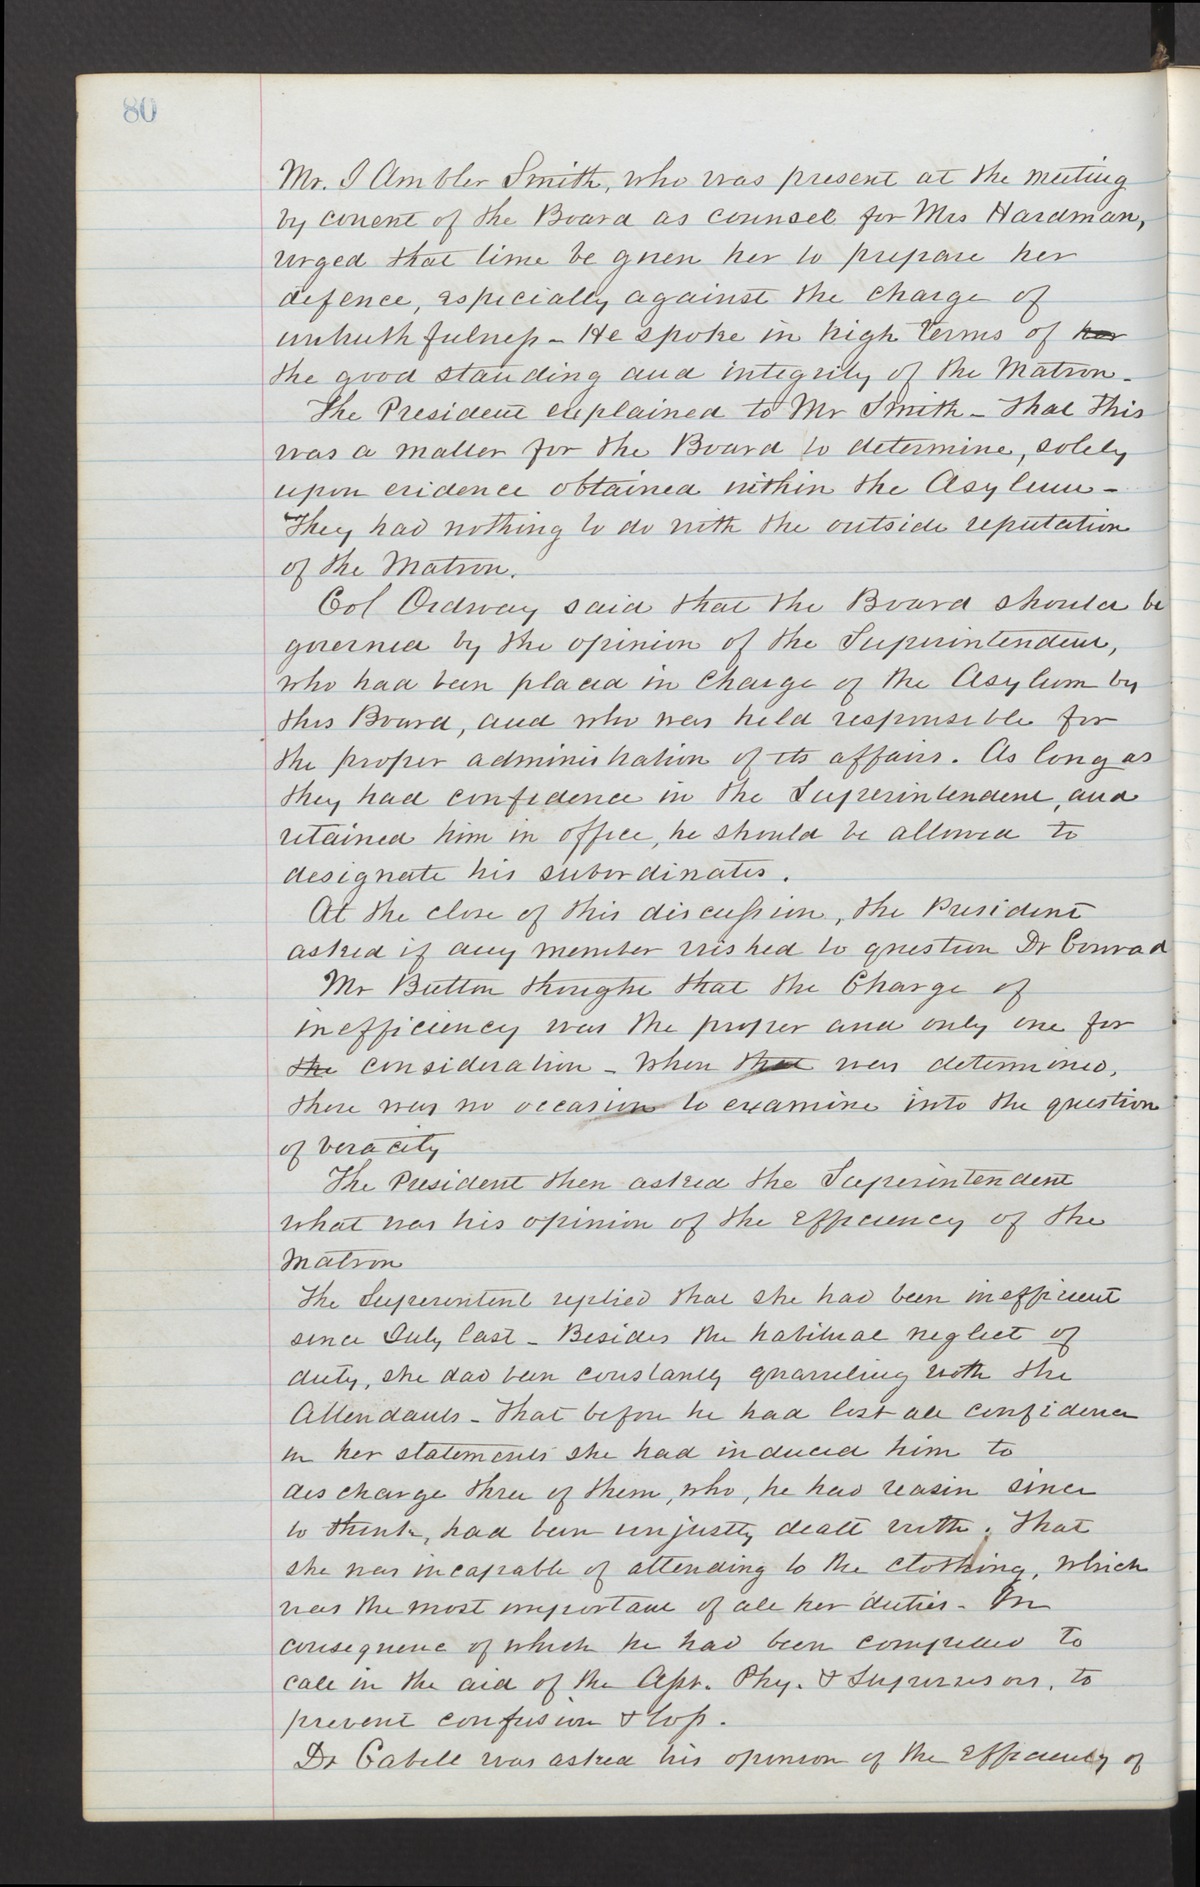 80
Mr. J Ambler Smith, who was present at the meeting
by conent of the Board as counsel for Mrs Hardman,
urged that time be given her to prepare her
defence, especially against the charge of
untruthfulness - He spoke in high terms of her
the good standing and integrity of the Matron -
The President explained to Mr Smith - that this
was a matter for the Board to determine, solely
upon evidence obtained within the Asylum -
They had nothing to do with the outside reputation
of the Matron.
Col Ordway said that the Board should be
governed by the opinion of the Superintendent,
who had been placed in charge of the Asylum by
this Board, and who was held responsible for
the proper administration of its affairs. As long as
they had confidence in the Superintendent, and
retained him in office, he should be allowed to
designate his subordinates.
At the close of this discussion, the President
asked if any member wished to question Dr Conrad
Mr Button thought that the Charge of
inefficiency was the proper and only one for
the consideration - When that was determined,
there was no occasion to examine into the question
of veracity
The President then asked the Superintendent
what was his opinion of the efficiency of the
Matron
The Superintent replied that she had been inefficient
since July last - Besides the habitual neglect of
duty, she had been constantly quarreling with the
Attendants - That before he had lost all confidence
in her statements she had induced him to
discharge three of them, who, he had reason since
to think, had been unjustly dealt with. That
she was incapable of attending to the clothing, which
was the most important of all her duties - In
consequence of which he had been compelled to
call in the aid of the Asst. Phy. & Supervisors, to
prevent confusion & loss.
Dr Cabell was asked his opinion of the efficiency of